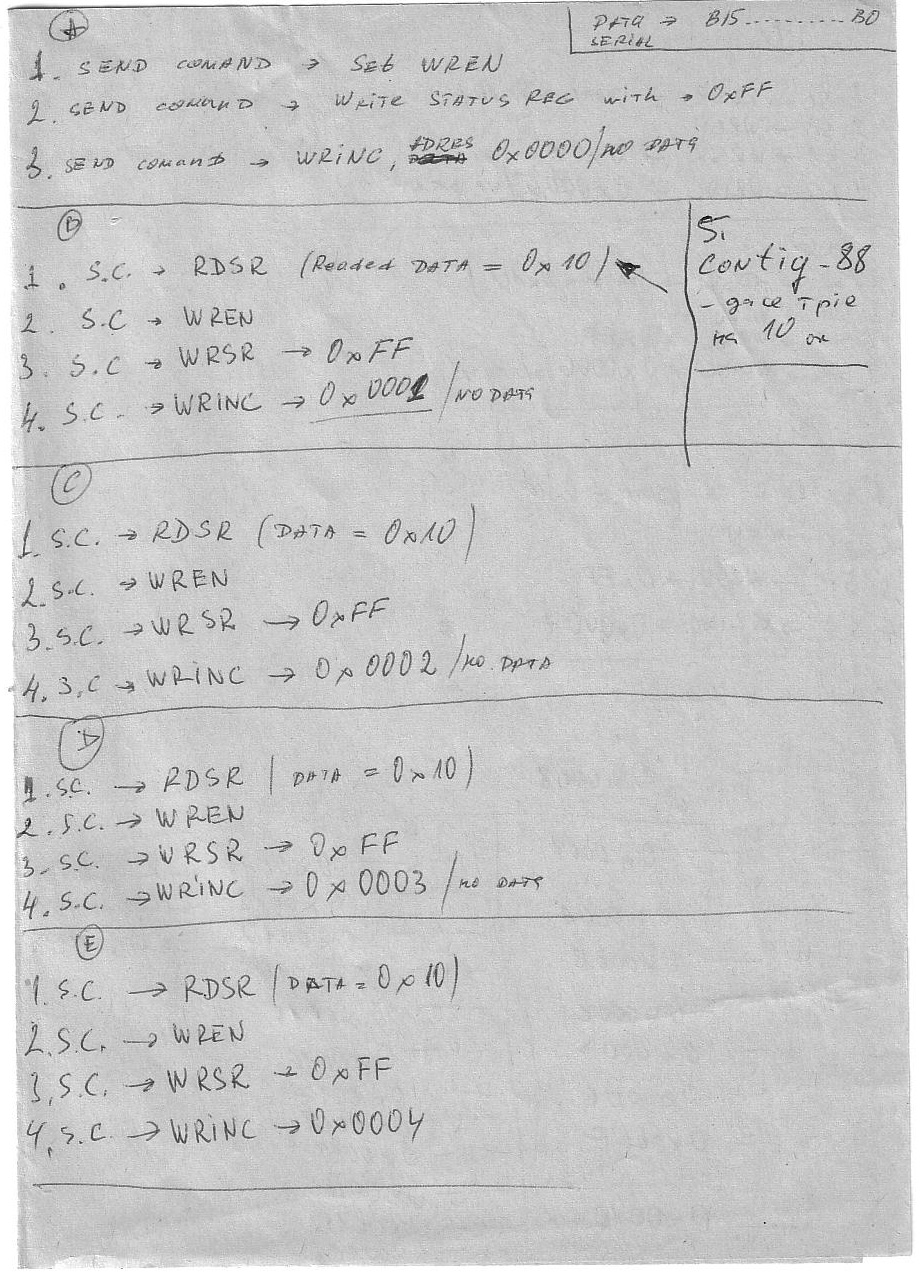 A
DATA → B15..........B0
SERIAL
1. SEND COMAND → Set WREN
2. SEND COMAND → Write STATUS REG with → 0xFF
3. SEND comand → WRINC, ADRES 0x0000/no DATA
B
1. S.C. → RDSR (Readed DATA = 0x10)
2. S.C → WREN
3. S.C → WRSR → 0xFF
4. S.C. → WRINC → 0x0001 /NO DATA
5.
config-88
на 10
C
1. S.C. → RDSR (DATA = 0x10)
2. S.C. → WREN
3. S.C. → WRSR → 0xFF
4. S.C → WRINC → 0x0002 /no DATA
D
1. SC. → RDSR (DATA = 0x10)
2. S.C. → WREN
3. SC. → WRSR → 0xFF
4. S.C. → WRINC → 0x0003 /no DATA
E
1. S.C. → RDSR (DATA = 0x10)
2. S.C. → WREN
3, S.C. → WRSR → 0xFF
4, S.C. → WRINC → 0x0004